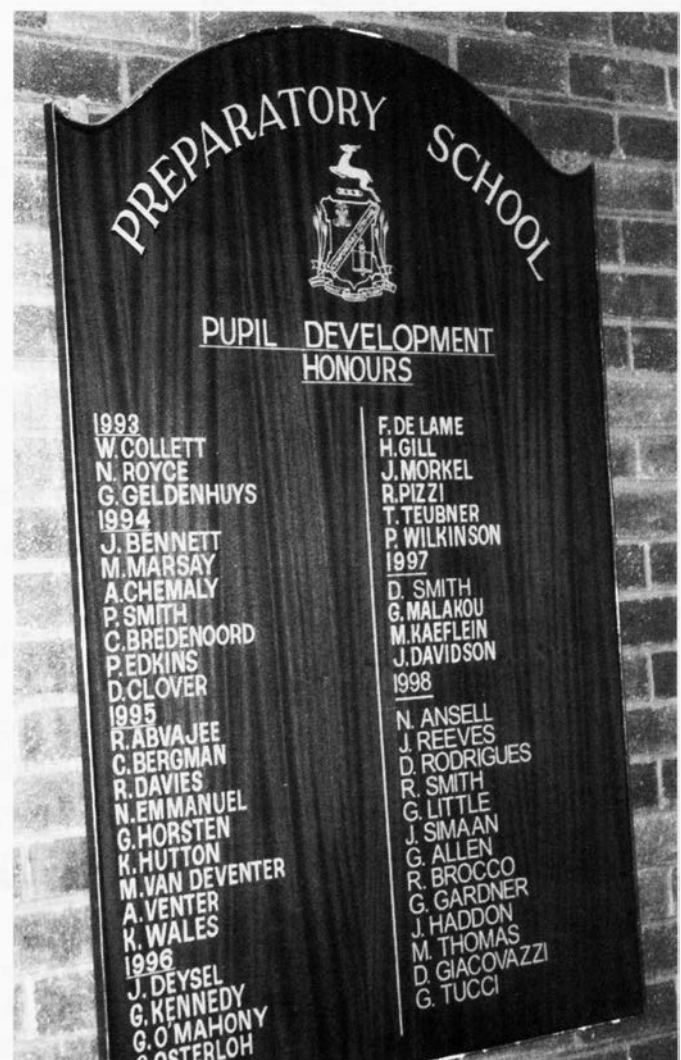 PREPARATORY SCHOOL
PUPIL DEVELOPMENT
HONOURS
1993
W. COLLETT
N. ROYCE
G. GELDENHUYS
1994
J. BENNETT
M. MARSAY
A. CHEMALY
P. SMITH
C. BREDENOORD
P. EDKINS
D. CLOVER
1995
R. ABVAJEE
C. BERGMAN
R. DAVIES
N. EMMANUEL
G. HORSTEN
K. HUTTON
M. VAN DEVENTER
A. VENTER
K. WALES
1996
J. DEYSEL
G. KENNEDY
G. O'MAHONY
OSTERLOH
F. DE LAME
H. GILL
J. MORKEL
R. PIZZI
T. TEUBNER
P. WILKINSON
1997
D. SMITH
G. MALAKOU
M. KAEFLEIN
J. DAVIDSON
1998
N. ANSELL
J. REEVES
D. RODRIGUES
R. SMITH
G. LITTLE
J. SIMAAN
G. ALLEN
R. BROCCO
G. GARDNER
J. HADDON
M. THOMAS
D. GIACOVAZZI
G. TUCCI